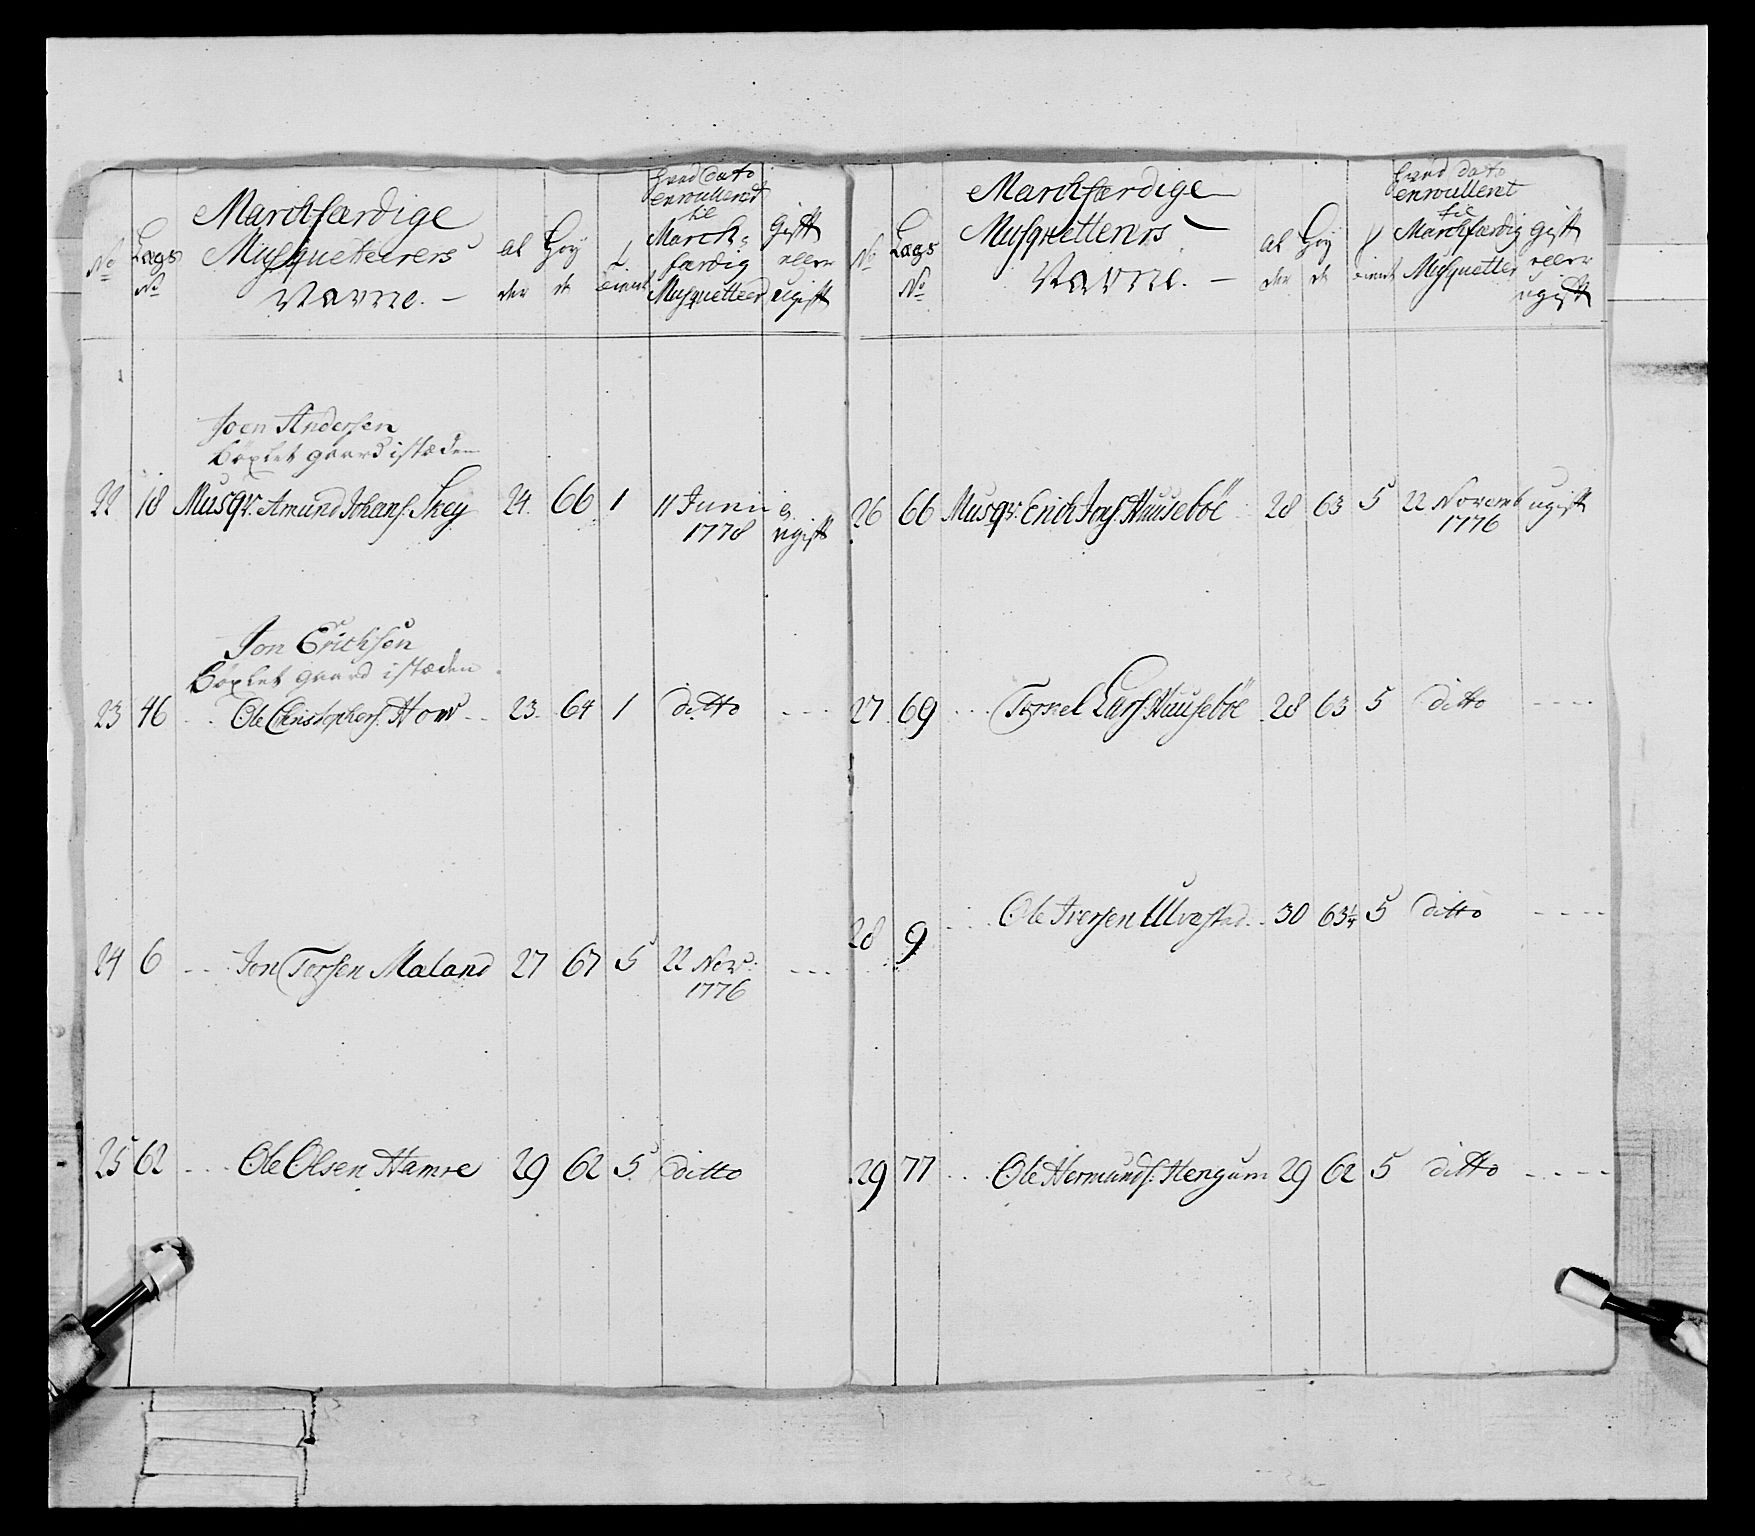 No
Lægs
No
Marchfærdige
Musqueteerers
Navne. –
Al
der
Høy
de
tient
hvad Dato
enroulleret
til
March=
færdig
Musquetteer
gift
eller
ugift
22 18 Joen Andersen
böxlet gaard i stæden
Musqr. Amund Johans. Skey 24. 66 1 11 Junii
1778
ugift
23 46 Jon Erichsen
böxlet gaard i stæden
- - Ole Christophers. How - - 23. 64 1 ditto - - -
24 6 - - Jon Torsen Maland 27 67 5 22 Nov:
1776 - - -
25 62 - - - Ole Olsen Hamre 29 62 5 ditto
No
Lægs
No
Marchfærdige
Musquetterers
Navne. –
Al
der
Høy
de
tient
hvad dato
enroulleret
til
Marchfærdig
Musquetter
gift
eller
ugift
26 66 Musqr. Erich Jons. Huuseböe 28 63 5 22 Novemb
1776
ugift
27 69 - - - Torkel Lars. Huuseböe 28 63 5 ditto - - - -
28 9 - - - Ole Iversen Ulvestad - - 30 63¼ 5 ditto - - - -
29 77 - - - Ole Hermunds. Hengum 29 62 5 ditto - - - -